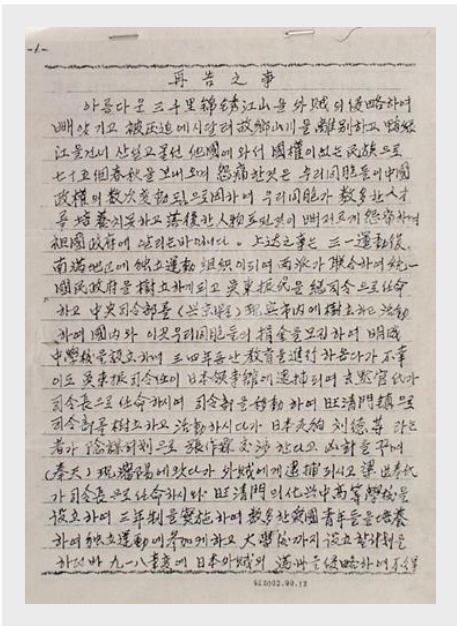 -1-
再告之事
아름다운 三千里錦綉江山을 外賊의 侵略하여
빼앗기고 被压迫에시달려 故鄕山川을 離別하고 鴨綠
江을건너 산설고물선 他國에 와서 國權이없는 民族으로
七十五個春秋을 보내오며 怨痛한것은 우리同胞들이 中國
政權의 数次変動됨으로因하여 우리同胞가 数多한人才
를 培養치못하고 落後한 人物도
祖國政府에 알리는바입니다. 上述之事는 三一運動後
南満地区에 独立運動 組織이되여 両派가 联合하여 統一
國民政府을 樹立하게되고 吳東振氏을 総司令으로任命
하고 中央司令部를 (兴京県) 現 市内에 樹立하고 活動
하여 國内와 우리同胞들의 捐金을모집하여
中學校을設立하여 三四年동안 教育을進行하옵다가 不幸
이도 吳東振司令任이 日本領事館에逮捕되여 玄黙官代가
司令長으로 任命하시여 司令部을移動하여 旺清門鎮으로
司令部를 樹立하고 活動하시다가 日本走狗 刘德 라는
者가 陰謀計划으로 張作霖 交涉한다고 凶計을꾸며
(奉天) 現瀋陽에왔다가 外賊에게逮捕되시고 梁世奉代
가司令長으로任命하시와 旺清門의 化兴中高等學校을
設立하여 三年制을實施하여 数多한愛國青年들을培養
하여独立運動에参加케하고 大學校까지 設立할計划을
하던바 九一八事変에 日本外賊의 満州을侵略하여